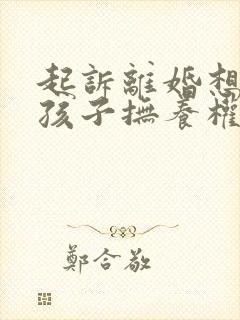 起訴離婚想
孩子撫養權
鄭合敬